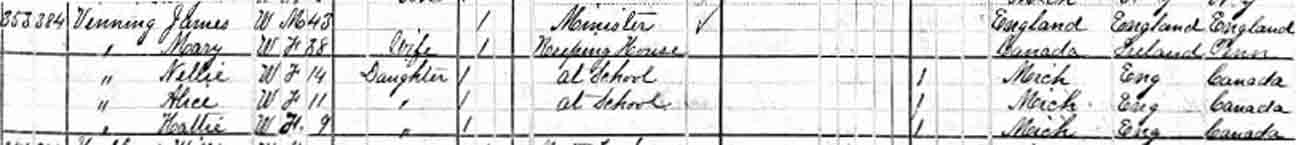 353 384 Venning James W M 43 1 Minister ✓ England England England
" Mary W F 38 Wife 1 Keeping House Canada Ireland Penn
" Nellie W F 14 Daughter 1 at School 1 Mich Eng Canada
" Alice W F 11 " 1 at School 1 Mich Eng Canada
" Hattie W F 9 " 1 1 Mich Eng Canada